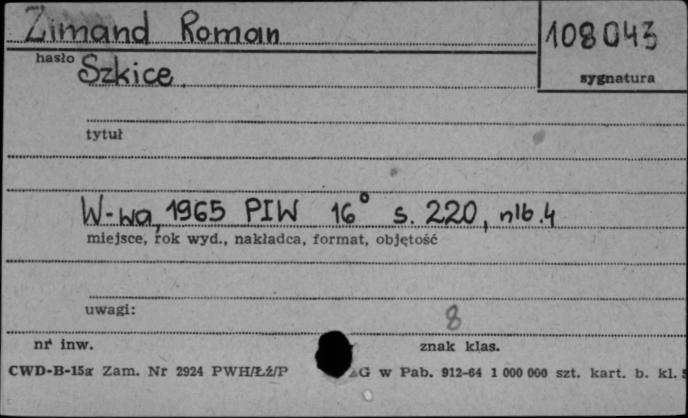 Zimand Roman 108043
hasło sygnatura
Szkice
tytuł
W-wa, 1965 PIW 16° s. 220, nlb. 4
miejsce, rok wyd., nakładca, format, objętość
uwagi:
8
nr inw. znak klas.
CWD-B-15a Zam. Nr 2924 PWH/Łź/P G w Pab. 912-64 1 000 000 szt. kart. b. kl.